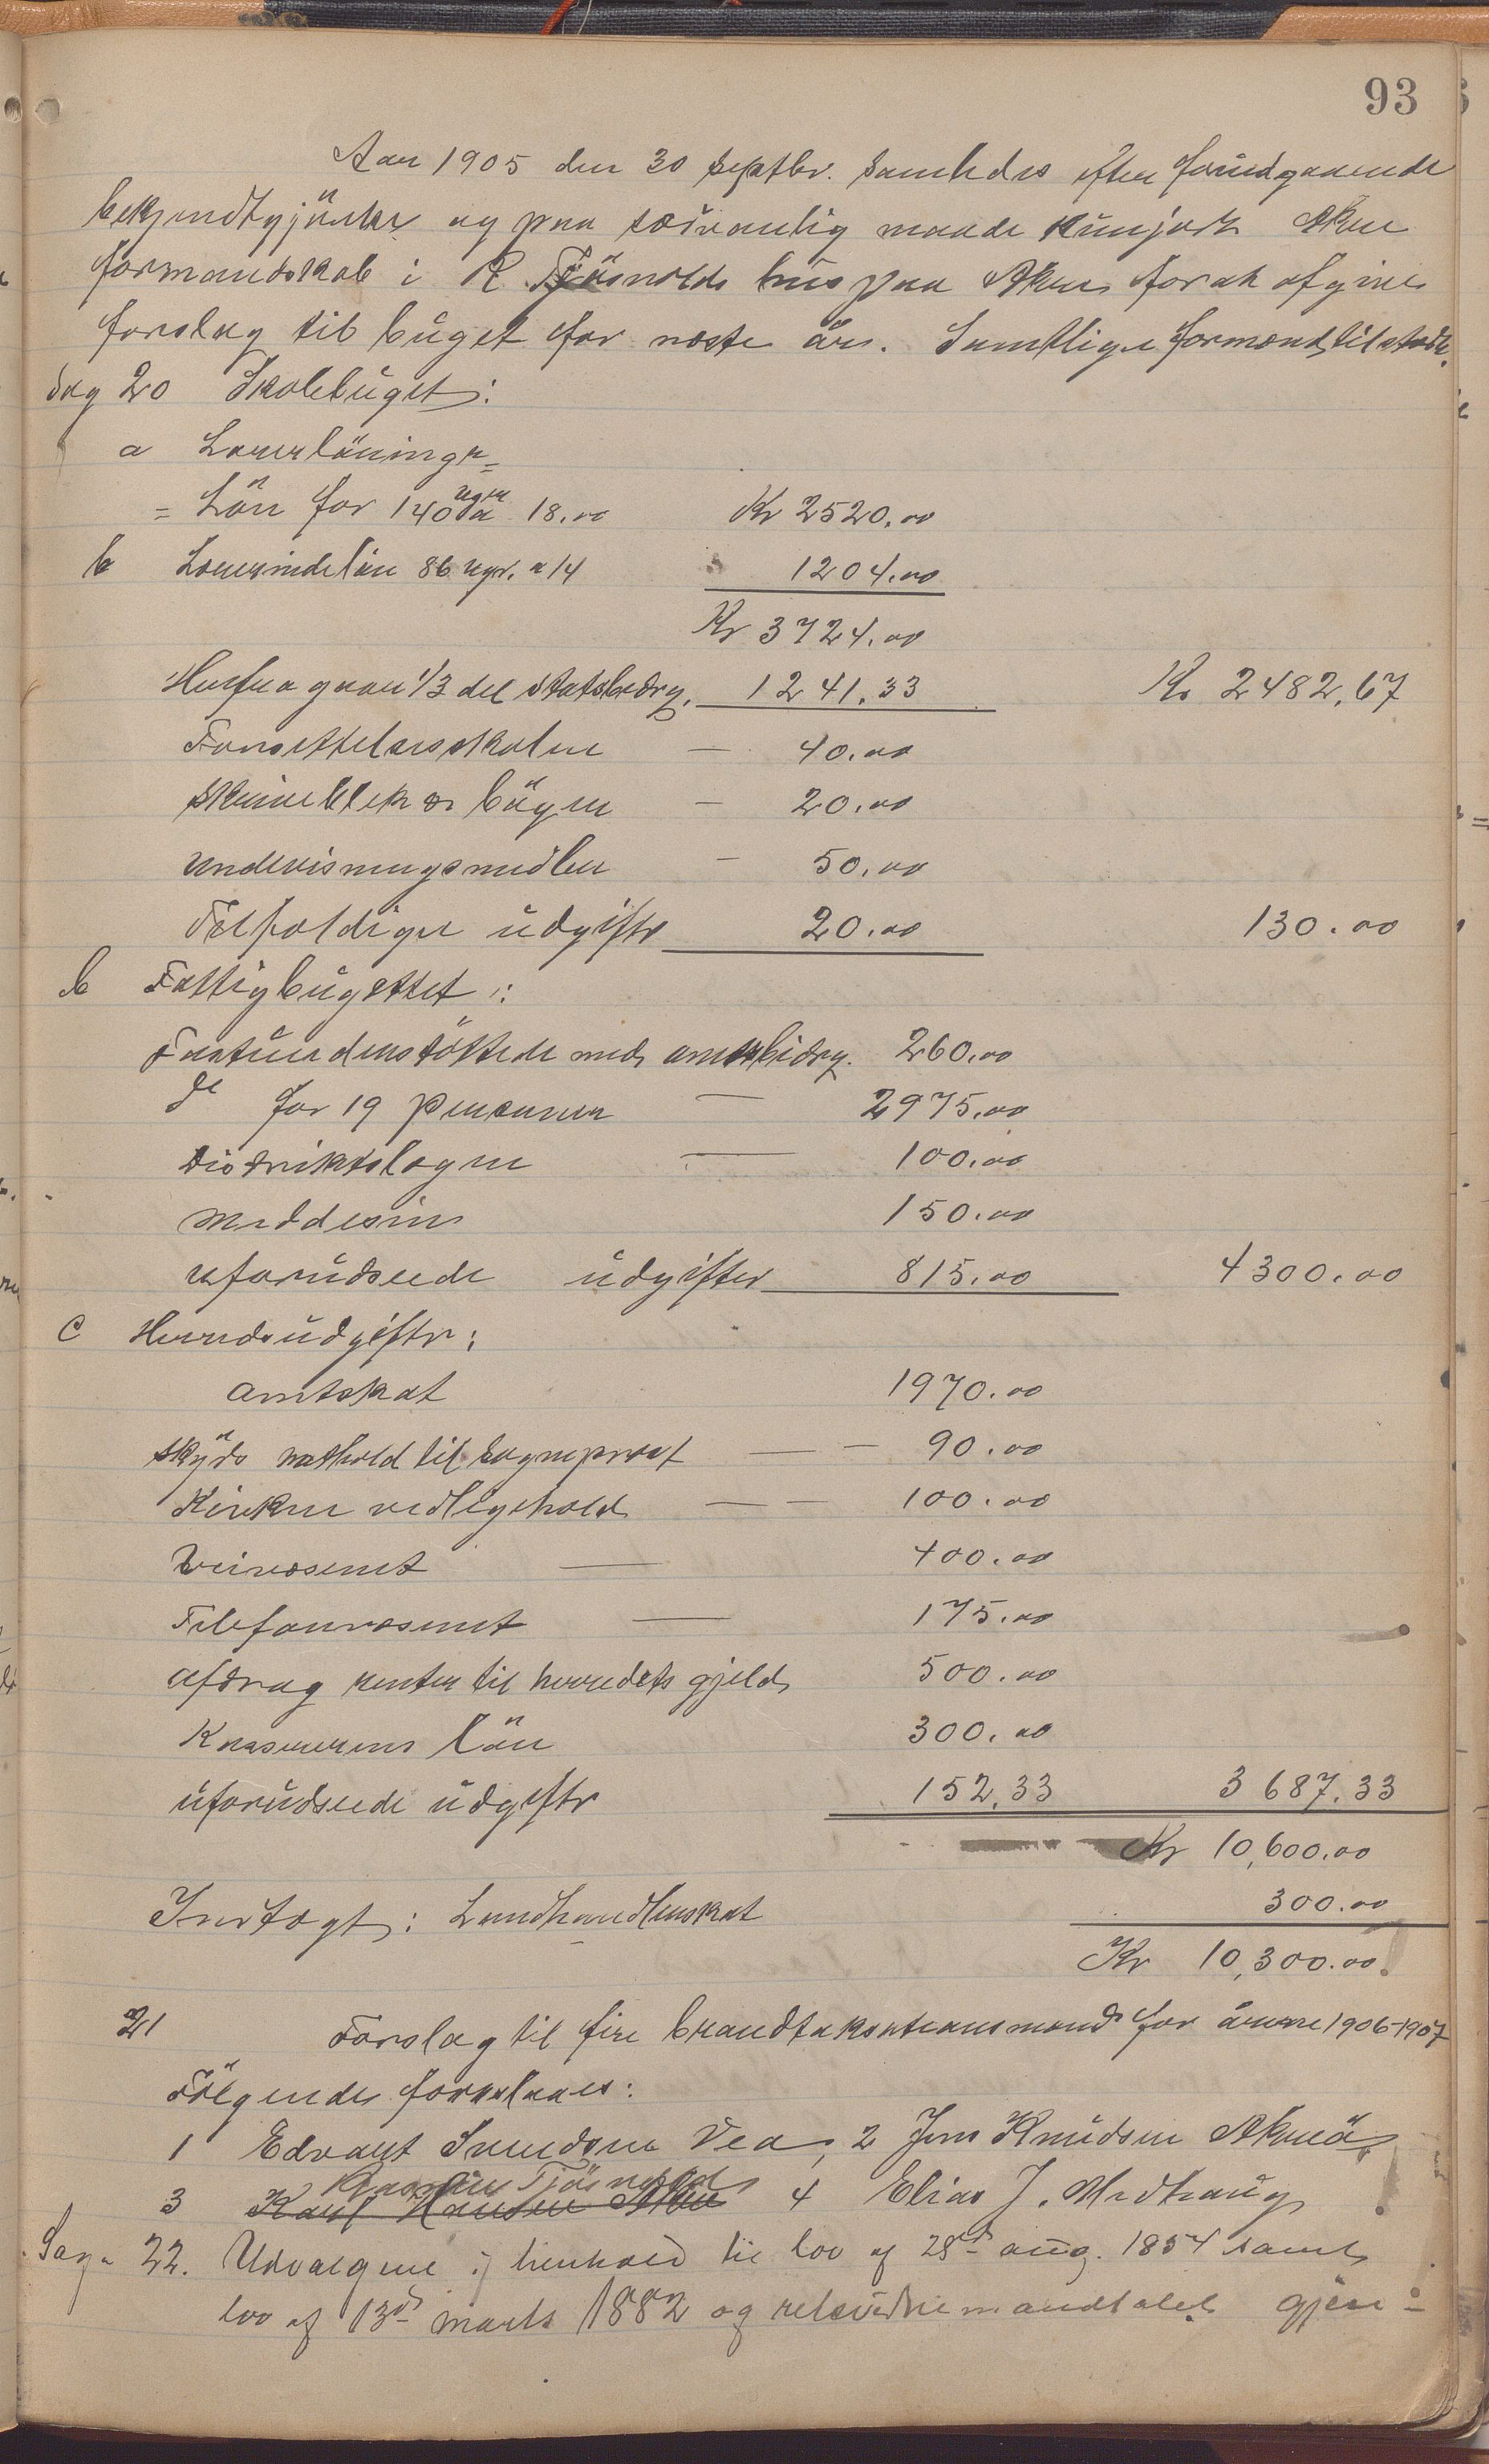 93
Aar 1905 den 30 septbr. samledes efter forudgaaende
bekjendtgjörelse og paa sædvanlig maade kungjort Akre
formandskab i R. Tjösvolds hus paa Akre for at afgive
forslag til buget for næste år. Samtlige formænd tilstede.
Sag 20 Skolebuget:
a Lærerlöninger
= Lön for 140 uger a 18.00 Kr 2520.00
b Lærerindelön 86 uger. a 14 1204.00
Kr 3724.00
Herfra gaar 1/3 del statsbidrg. 1241.33 Kr 2482,67
Forsettelsesskolen — 40.00
skriveblek & böger — 20.00
undervisningsmidler — 50.00
Tilfældiger udgifter 20.00 130.00
b Fattigbugettet:
Fastunderstöttede med amtsbidrg. 260.00
do for 19 personer — 2975.00
Distriktslægen — 100.00
meddesin 150.00
uforudseede udgifter 815.00 4300.00
c Herredsudgifter:
amtskat 1970.00
skyds nathold til sogneprest — — 90.00
Kirken vedlegehold — — 100.00
Veivæsenet — 400.00
Telefonvæsenet — 175.00
afdrag renter til herredets gjeld 500.00
Kasserens lön 300.00
uforudseede udgifter 152,33 3687.33
Kr 10,600.00
Indtægt: Landhandlerskat 300.00
Kr 10,300.00
21 Forslag til fire brandtakstationsmænd for årene 1906-1907
Fölgende forslaaes:
1 Edvart Svendsen Vea, 2 Jens Knudsen Akrea
Rasmus Tjösvold
3 Karl Hansen Akre 4 Elias J. Medhaug
Sag 22. Udvalgene i henhold til lov af 28de aug. 1854 samt
lov af 13de marts 1882 og mandtalet gjen-